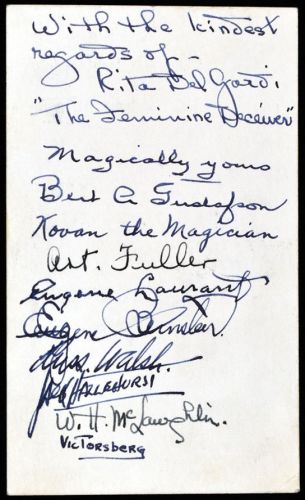 With the kindest
regards of -
Rita Del Gardi
"The Feminine Deceiver"
Magically yours
Bert A Gustafson
Kovan the Magician
Art. Fuller
Eugene Laurant
Eugene
Russ. Walsh.
W. H. McLaughlin.
VICTORSBERG